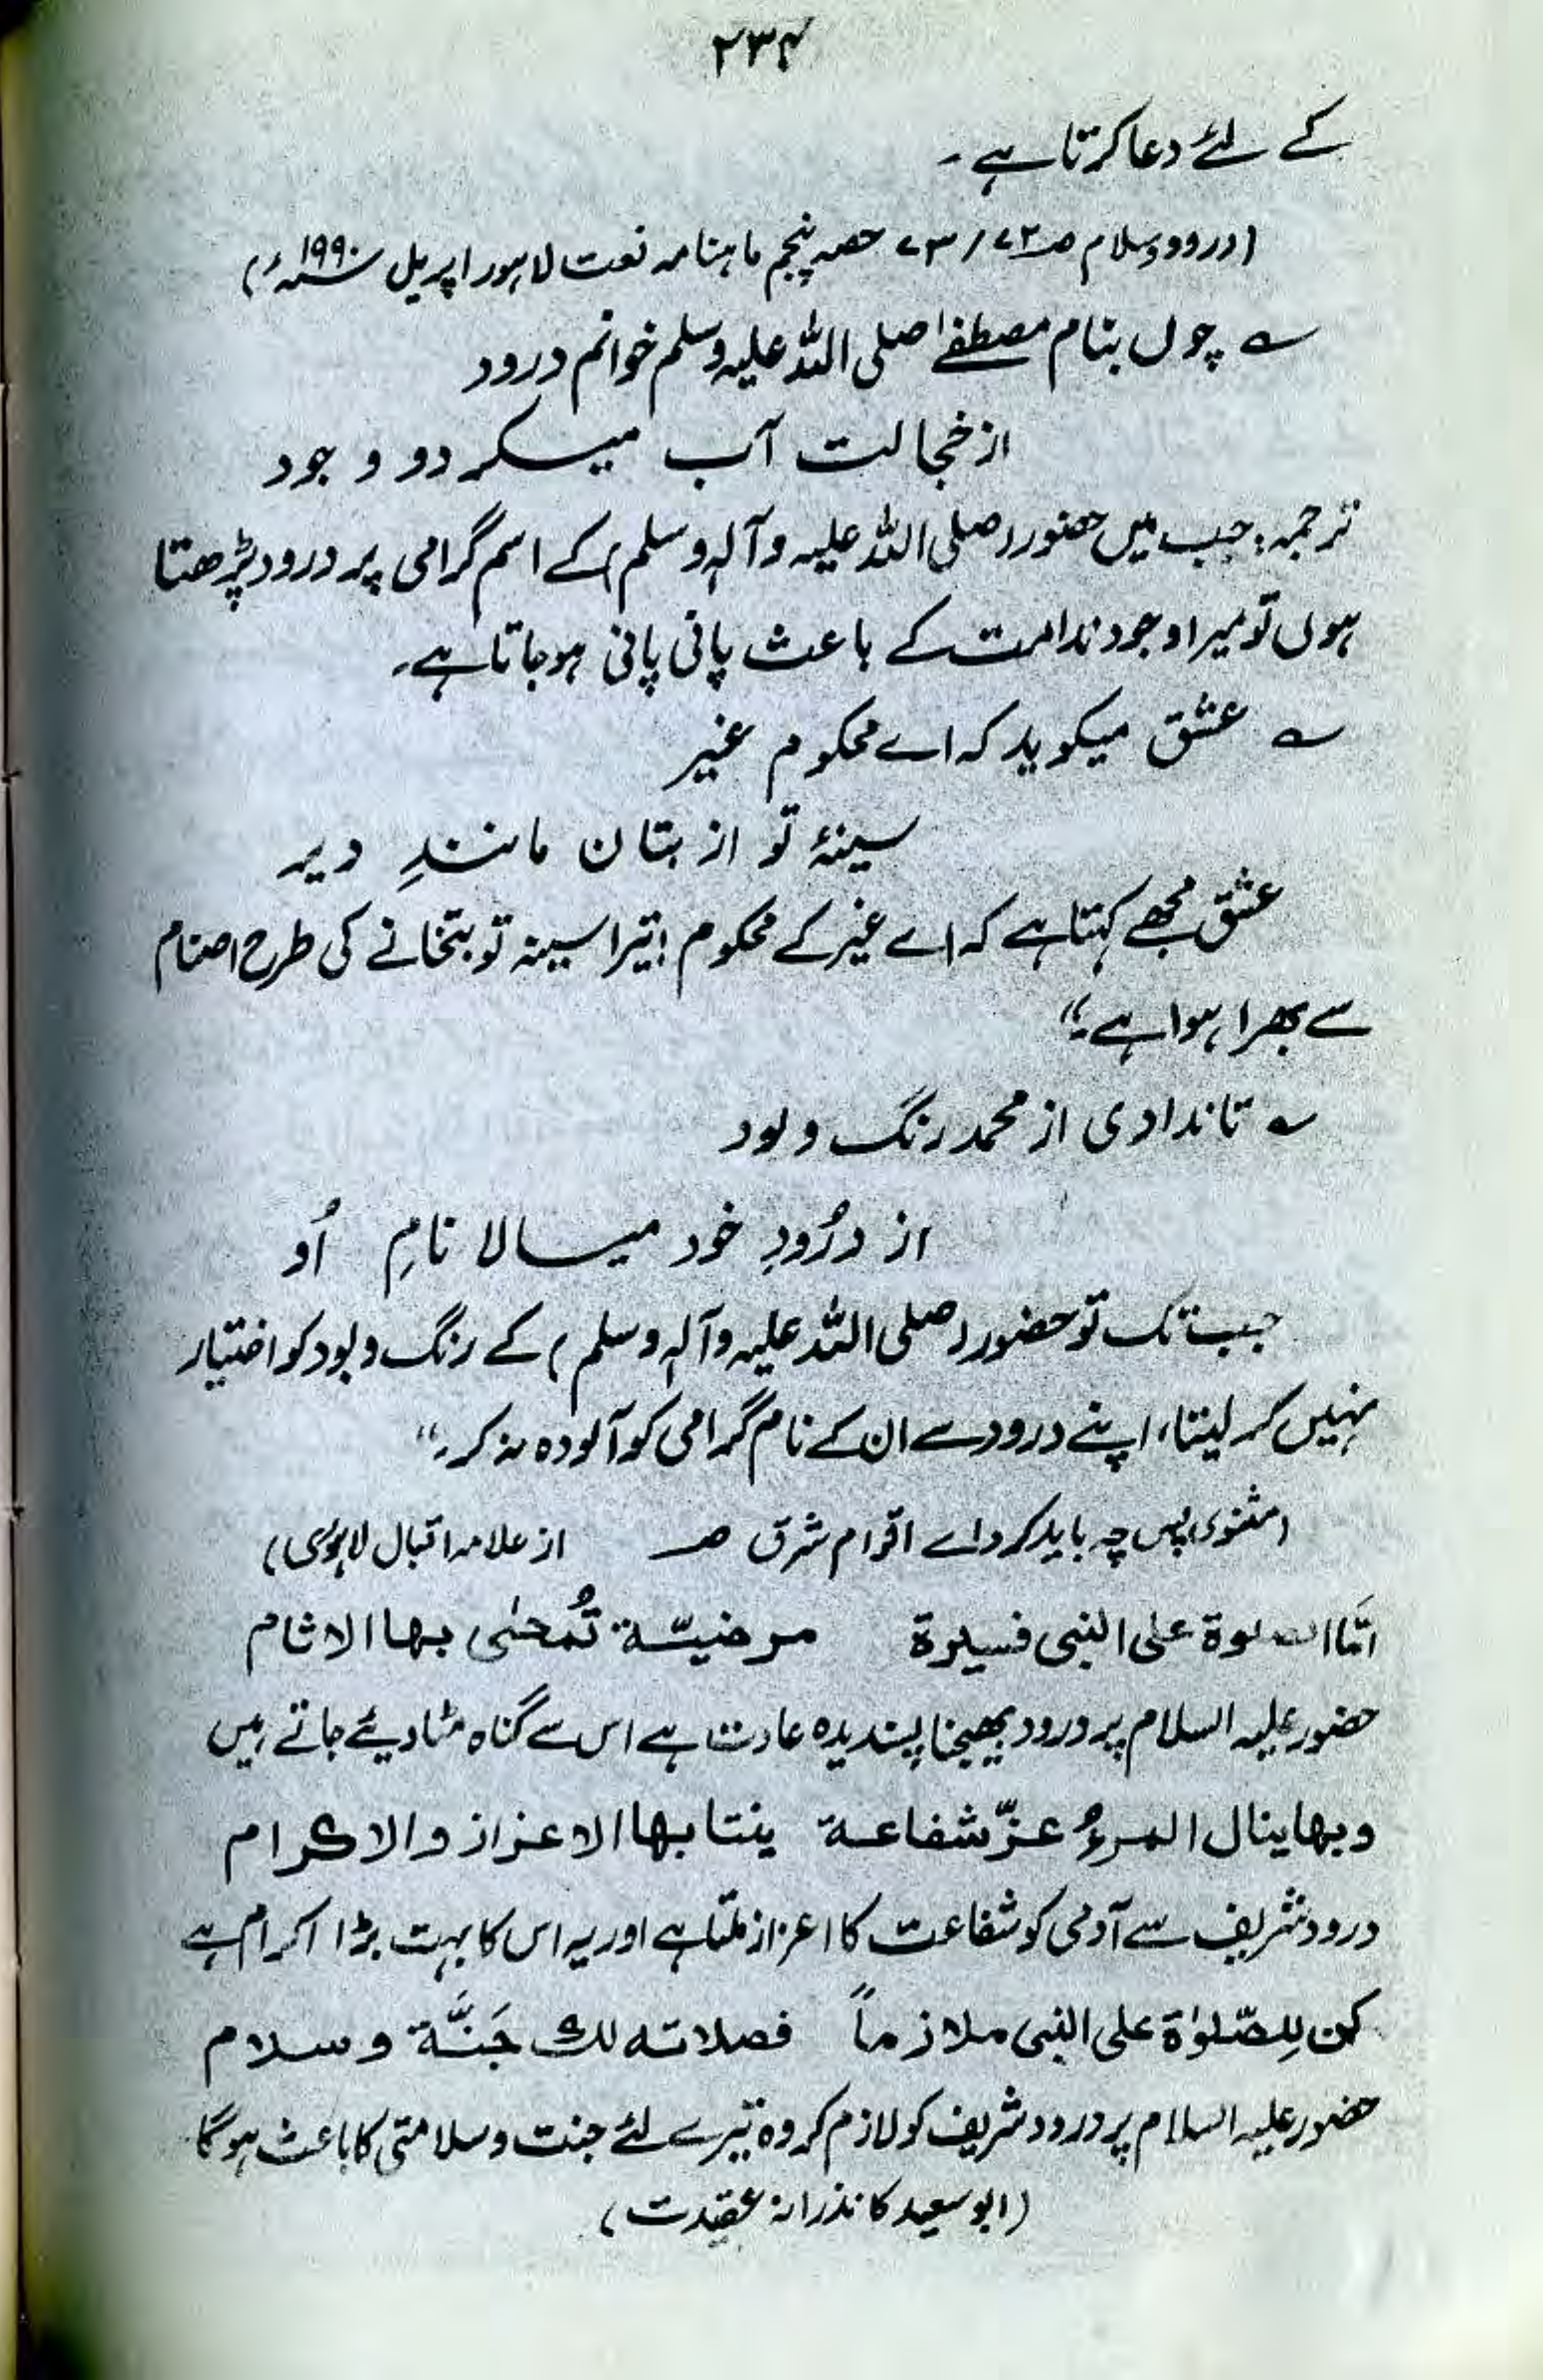 ۲۳۴
کے لئے دعا کرتا ہے۔
(درود و سلام صـ ۷۲ / ۷۳ حصہ پنجم ماہنامہ نعت لاہور اپریل ۱۹۹۰ء)
؎ چوں بنام مصطفےٰ صلی اللہ علیہ وسلم خوانم درود
از خجالت آب میگردو وجود
ترجمہ: جب میں حضور (صلی اللہ علیہ وآلہ وسلم) کے اسم گرامی پر درود پڑھتا
ہوں تو میرا وجود ندامت کے باعث پانی پانی ہو جاتا ہے۔
؎ عشق میکوید کہ اے محکوم غیر
سینۂ تو از بتان مانندِ دیر
عشق مجھے کہتا ہے کہ اے غیر کے محکوم! تیرا سینہ تو بتخانے کی طرح اصنام
سے بھرا ہوا ہے۔"
؎ تا نداوی از محمد رنگ و لود
از درُودِ خود میسالا نامِ اُو
جب تک تو حضور (صلی اللہ علیہ وآلہ وسلم) کے رنگ و بود کو اختیار
نہیں کر لیتا، اپنے درود سے ان کے نام گرامی کو آلودہ نہ کر۔"
(مثنوی پس چہ باید کرد اے اقوام شرق صـ از علامہ اقبال لاہوری)
امّا الصلوة علی النبی فسیرة مرضیّة تُمحٰی بها الاثام
حضور علیہ السلام پر درود بھیجنا پسندیدہ عادت ہے اس سے گناہ مٹا دیئے جاتے ہیں
وبها ینال المرءُ عزّ شفاعة ینتا بها الاعزاز والاکرام
درود شریف سے آدمی کو شفاعت کا اعزاز ملتا ہے اور یہ اس کا بہت بڑا اکرام ہے
کن لِلصّلوٰة علی النبی ملازماً فصلاته لك جَنَّة وسلام
حضور علیہ السلام پر درود شریف کو لازم کر وہ تیرے لئے جنت و سلامتی کا باعث ہوگا
(ابو سعید کا نذرانہ عقیدت)